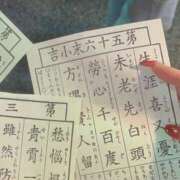 第五十六末小吉
生涯喜又憂
未老先白頭
勞心千百度
方遇貴人留
第三
愁惱
青霄一
雖然防
第